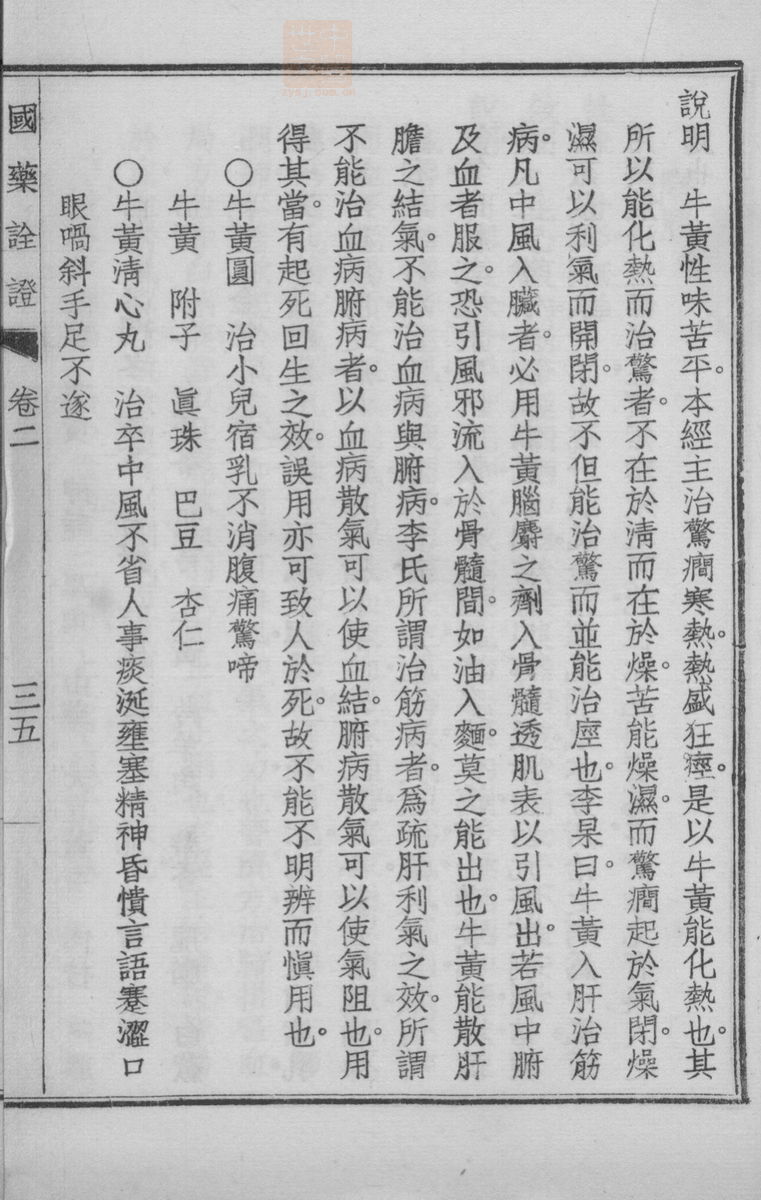 說明　牛黃性味苦平。本經主治驚癎寒熱。熱盛狂痙。是以牛黃能化熱也。其
所以能化熱而治驚者。不在於淸而在於燥。苦能燥濕。而驚癎起於氣閉。燥
濕可以利氣而開閉。故不但能治驚而並能治痙也。李杲曰。牛黃入肝治筋
病。凡中風入臟者。必用牛黃腦麝之劑入骨髓透肌表以引風出。若風中腑
及血者服之。恐引風邪流入於骨髓間。如油入麵。莫之能出也。牛黃能散肝
膽之結氣。不能治血病與腑病。李氏所謂治筋病者。爲疏肝利氣之效。所謂
不能治血病腑病者。以血病散氣可以使血結。腑病散氣可以使氣阻也。用
得其當。有起死回生之效。誤用亦可致人於死。故不能不明辨而愼用也。
○牛黃圓　治小兒宿乳不消腹痛驚啼
牛黃　附子　眞珠　巴豆　杏仁
○牛黃淸心丸　治卒中風不省人事痰涎壅塞精神昏憒言語蹇澀口
眼喎斜手足不遂
國藥詮證　卷二　三五
中醫世家
zysj.com.cn